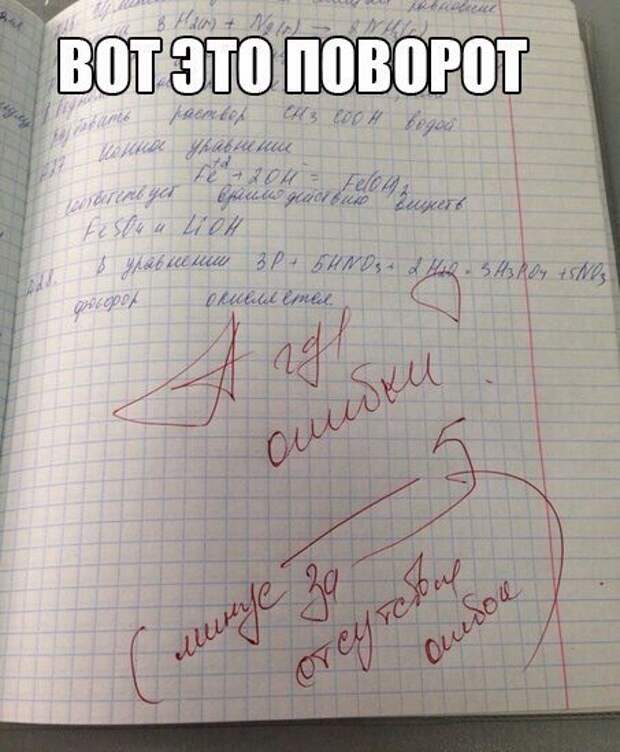 3H₂(г) + N₂(г) → 2NH₃(г)
ВОТ ЭТО ПОВОРОТ
разбавить раствор CH₃COOH водой
Ионное уравнение
Fe⁺² + 2OH⁻ = Fe(OH)₂
соответствует взаимодействию веществ
FeSO₄ и LiOH
В уравнении 3P + 5HNO₃ + 2H₂O = 3H₃PO₄ + 5NO₃
фосфор окисляется.
А где
ошибки
5
(минус за
отсутствие
ошибок)